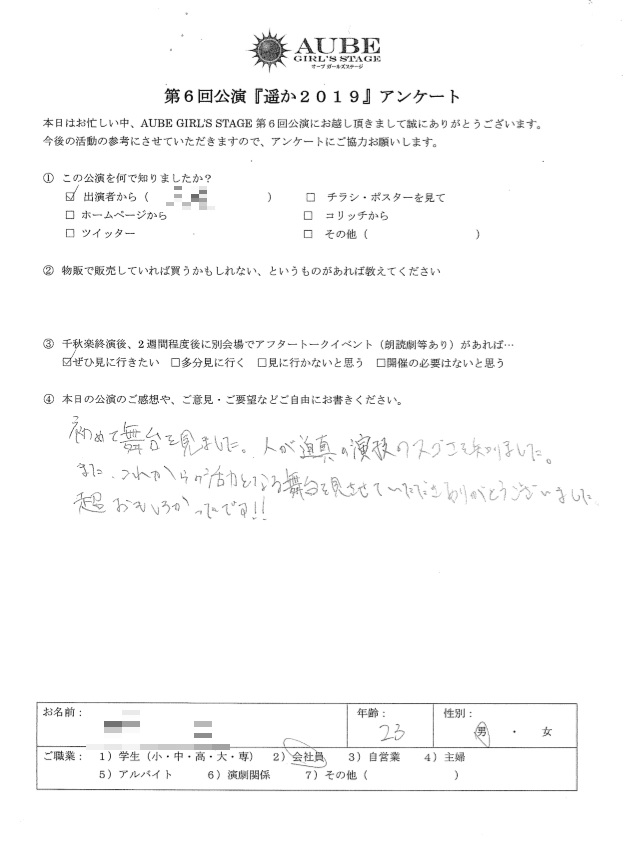 AUBE
GIRL'S STAGE
オーブ ガールズステージ
第6回公演『遥か2019』アンケート
本日はお忙しい中、AUBE GIRL'S STAGE 第6回公演にお越し頂きまして誠にありがとうございます。
今後の活動の参考にさせていただきますので、アンケートにご協力お願いします。
① この公演を何で知りましたか？
☑ 出演者から（ ） □ チラシ・ポスターを見て
□ ホームページから □ コリッチから
□ ツイッター □ その他（ ）
② 物販で販売していれば買うかもしれない、というものがあれば教えてください
③ 千秋楽終演後、2週間程度後に別会場でアフタートークイベント（朗読劇等あり）があれば…
☑ぜひ見に行きたい □多分見に行く □見に行かないと思う □開催の必要はないと思う
④ 本日の公演のご感想や、ご意見・ご要望などご自由にお書きください。
初めて舞台を見ました。人が迫真の演技のスゴさを知りました。
また、これからの活力となる舞台を見させていただきありがとうございました
超おもしろかったです!!
お名前： 年齢： 23 性別： 男 ・ 女
ご職業： 1）学生（小・中・高・大・専） 2）会社員 3）自営業 4）主婦
5）アルバイト 6）演劇関係 7）その他（ ）